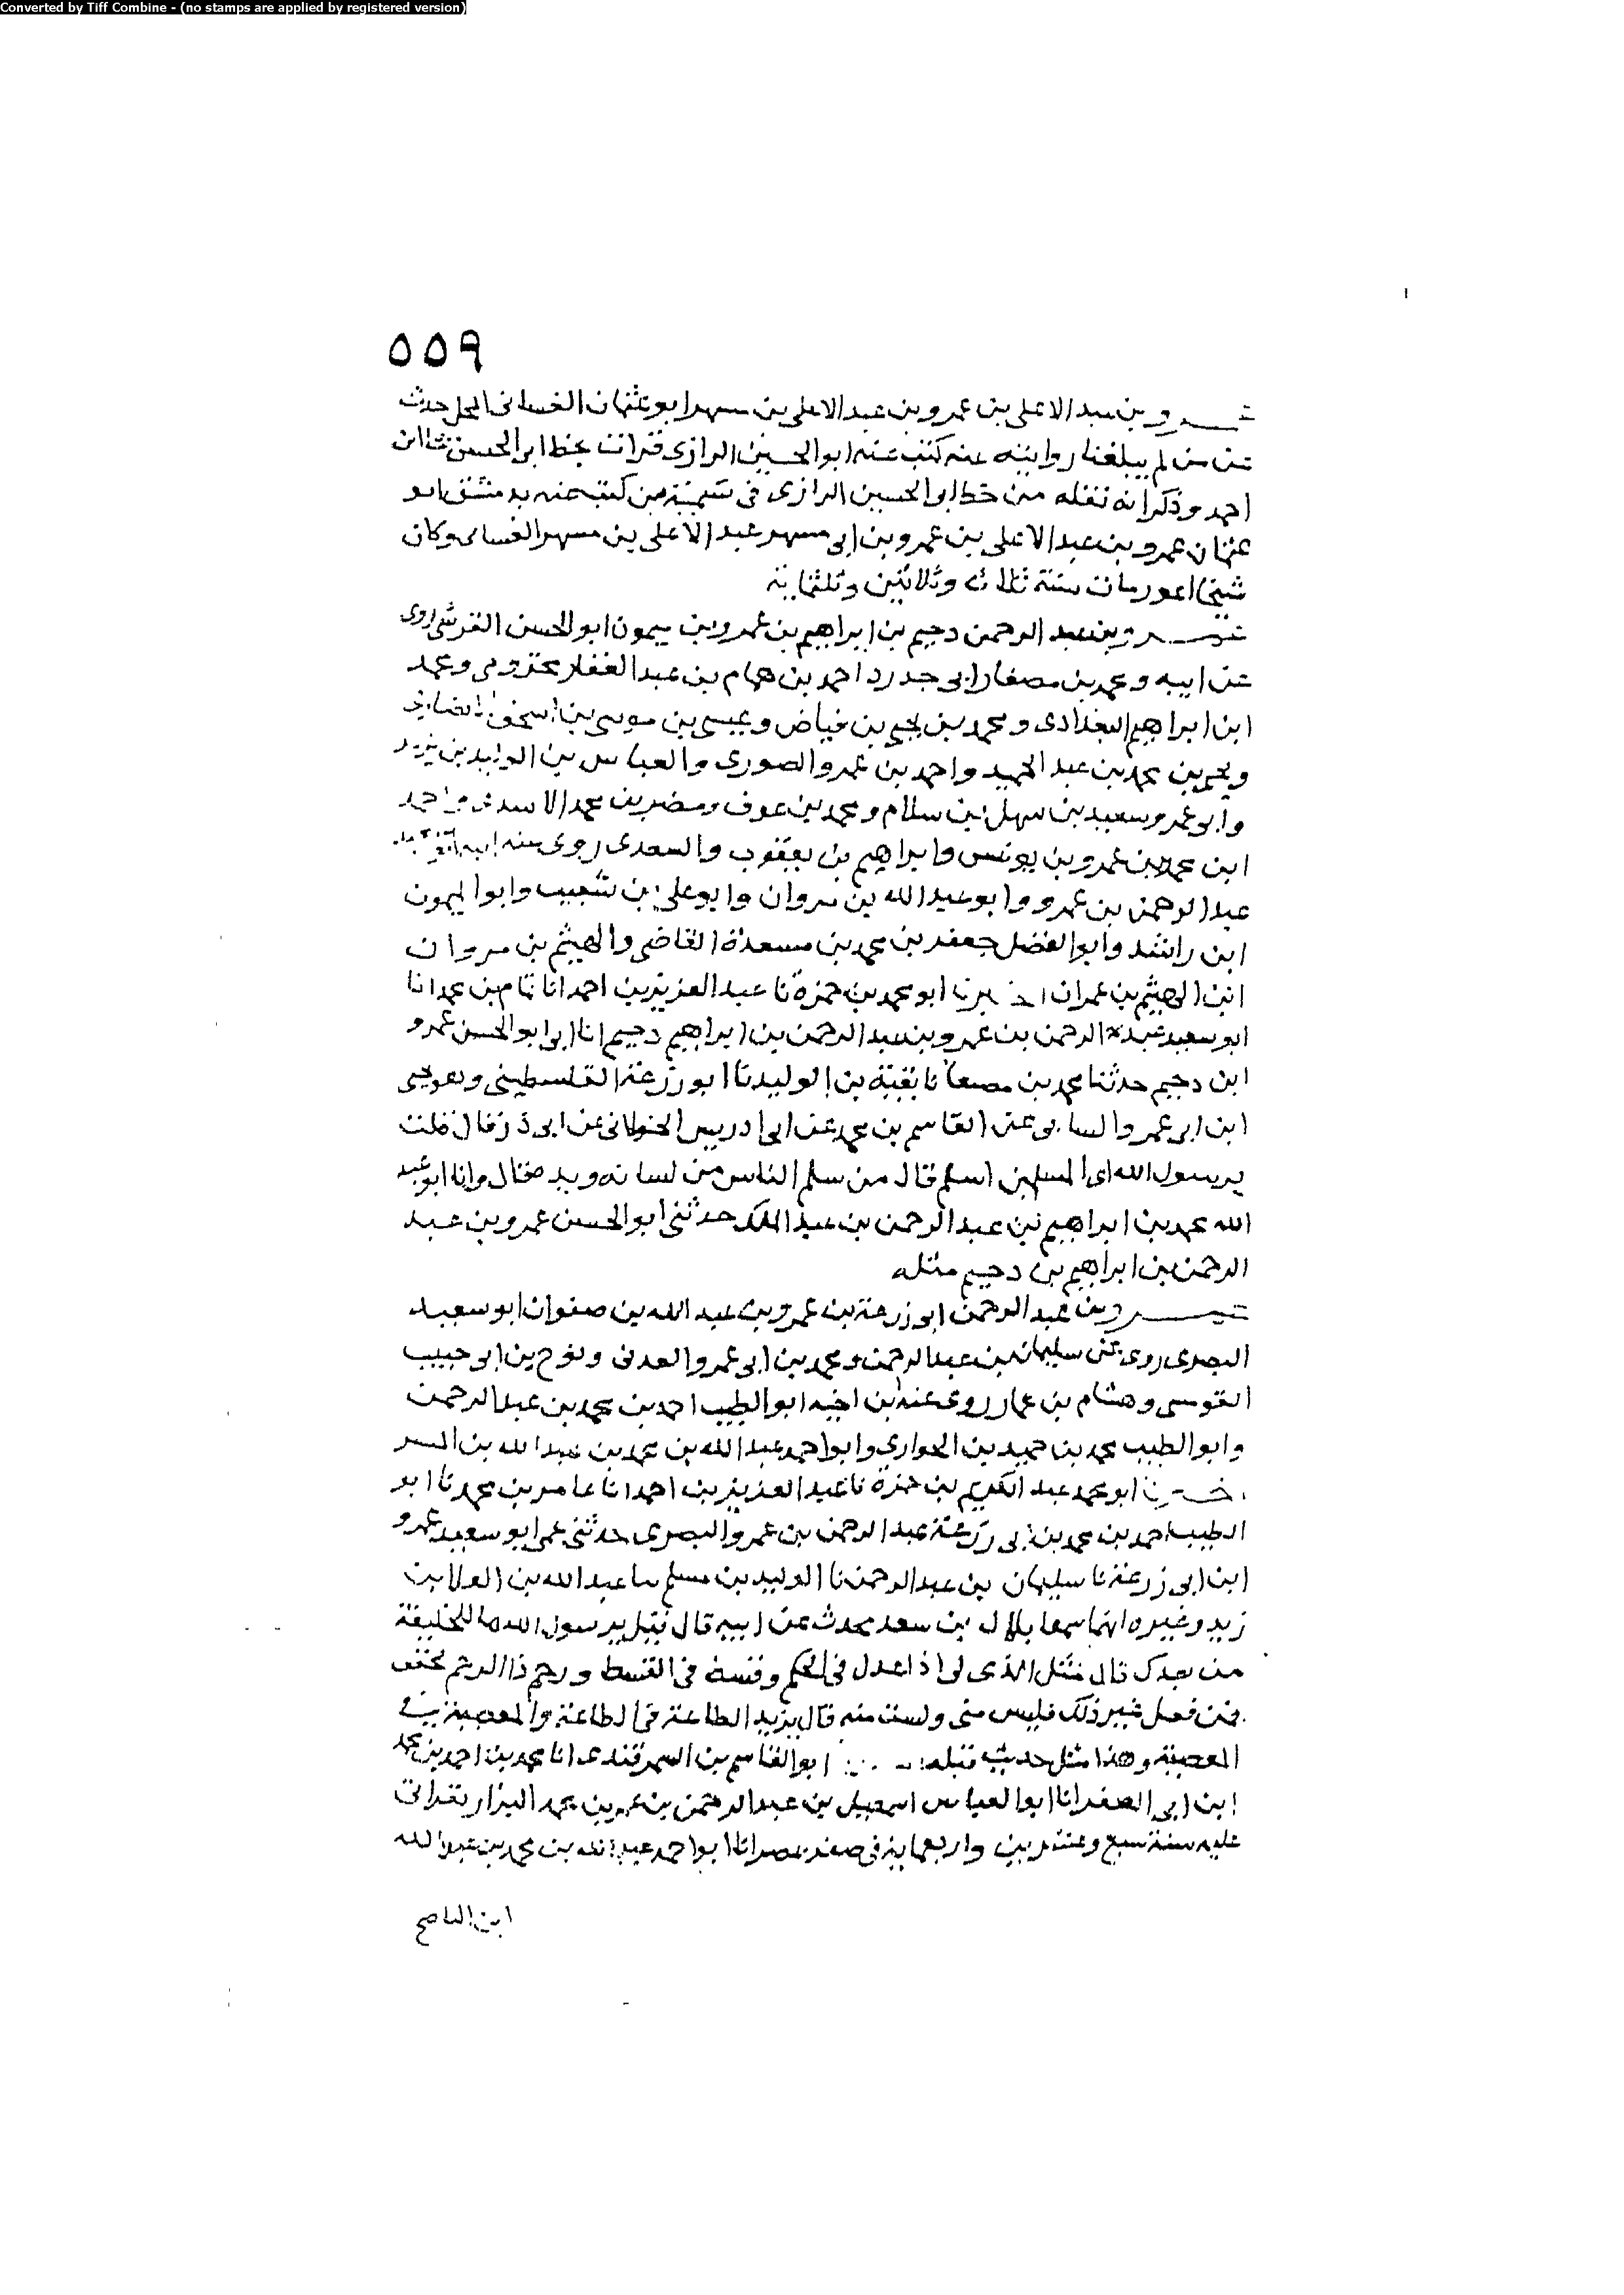 Converted by Tiff Combine - (no stamps are applied by registered version)
٥٥٩
عمرو بن عبد الاعلى بن عمرو بن عبد الاعلى بن مسهر ابو عثمان الغسانى حدث
عن من لم يبلغنا روايته عنه كتب عنه ابو الحسين الرازى قرات بخط ابى الحسن نجا ابن
احمد وذكر انه نقله من خط ابى الحسين الرازى فى تسمية من كتب عنه بدمشق ابو
عثمان عمرو بن عبد الاعلى بن عمرو بن ابى مسهر عبد الاعلى بن مسهر الغسانى وكان
شيخا اعور مات سنة ثلاث وثلاثين وثلثماية
عمرو بن عبد الرحمن دحيم بن ابراهيم بن عمرو بن ميمون ابو الحسن القرشى روى
عن ابيه ومحمد بن مصفا احمد بن هام بن عبد الغفار ومحمد
ابن ابراهيم البغدادى ومحمد بن يحيى بن فياض وعيسى بن موسى بن اسحق
ويحيى بن محمد بن عبد الحميد واحمد بن عمرو الصورى والعباس بن الوليد بن مزيد
وابو عمرو سعيد بن سهل بن سلام ومحمد بن عوف ومضر بن محمد الاسدى واحمد
ابن محمد بن عمرو بن يونس وابراهيم بن يعقوب والسعدى روى عنه ابنه
عبد الرحمن بن عمرو وابو عبد الله بن مروان وابو على بن شعيب وابو الميمون
ابن راشد وابو الفضل جعفر بن محمد بن مسعدة القاضى والهيثم بن مروان
ابن الهيثم بن عمران اخبرنا ابو محمد بن حمزة نا عبد العزيز بن احمد انا تمام بن محمد انا
ابو سعيد عبد الرحمن بن عمرو بن عبد الرحمن بن ابراهيم دحيم انا ابى ابو الحسن عمرو
ابن دحيم حدثنا محمد بن مصفا نا بقية بن الوليد نا ابو زرعة الفلسطينى وهو يحيى
ابن ابى عمرو عن القاسم بن محمد عن ابى ادريس الخولانى عن ابى ذر قال قلت
يرسول الله اى المسلمين اسلم قال من سلم الناس من لسانه ويده قال وانا ابو عبد
الله محمد بن ابراهيم بن عبد الرحمن بن عبد الملك حدثنى ابو الحسن عمرو بن عبد
الرحمن بن ابراهيم بن دحيم مثله
عمرو بن عبد الرحمن ابى زرعة بن عمرو بن عبد الله بن صفوان ابو سعيد
البصرى روى عن سليمان بن عبد الرحمن ومحمد بن ابى عمرو العدنى ونوح بن ابى حبيب
القومسى وهشام بن عمار روى عنه ابن اخيه ابو الطيب احمد بن محمد بن عبد الرحمن
وابو الطيب محمد بن حميد بن الحوارى وابو احمد عبد الله بن محمد بن عبد الله بن المفسر
اخبرنا ابو محمد عبد الكريم بن حمزة نا عبد العزيز بن احمد انا عامر بن محمد نا ابو
الطيب احمد بن محمد بن ابى زرعة عبد الرحمن بن عمرو البصرى حدثنى عمى ابو سعيد عمرو
ابن ابى زرعة نا سليمان بن عبد الرحمن نا الوليد بن مسلم نا عبد الله بن العلا بن
زبر وغيره انهما سمعا بلال بن سعد يحدث عن ابيه قال قيل يرسول الله ما للخليفة
من بعدك قال مثل الذى لى اذا عدل فى الحكم وقسط فى القسط ورحم ذا الرحم
فمن فعل غير ذلك فليس منى ولست منه قال يزيد الطاعة فى الطاعة والمعصية فى
المعصية وهذا مثل حديث قبله ابو القاسم بن السمرقندى انا محمد بن احمد بن محمد
ابن ابى الصقر انا ابو العباس اسمعيل بن عبد الرحمن بن عمر بن محمد البزار بقراتى
عليه سنة سبع وعشرين واربعماية فى صفر بمصر انا ابو احمد عبد الله بن محمد بن عبد الله
ابن الناصح